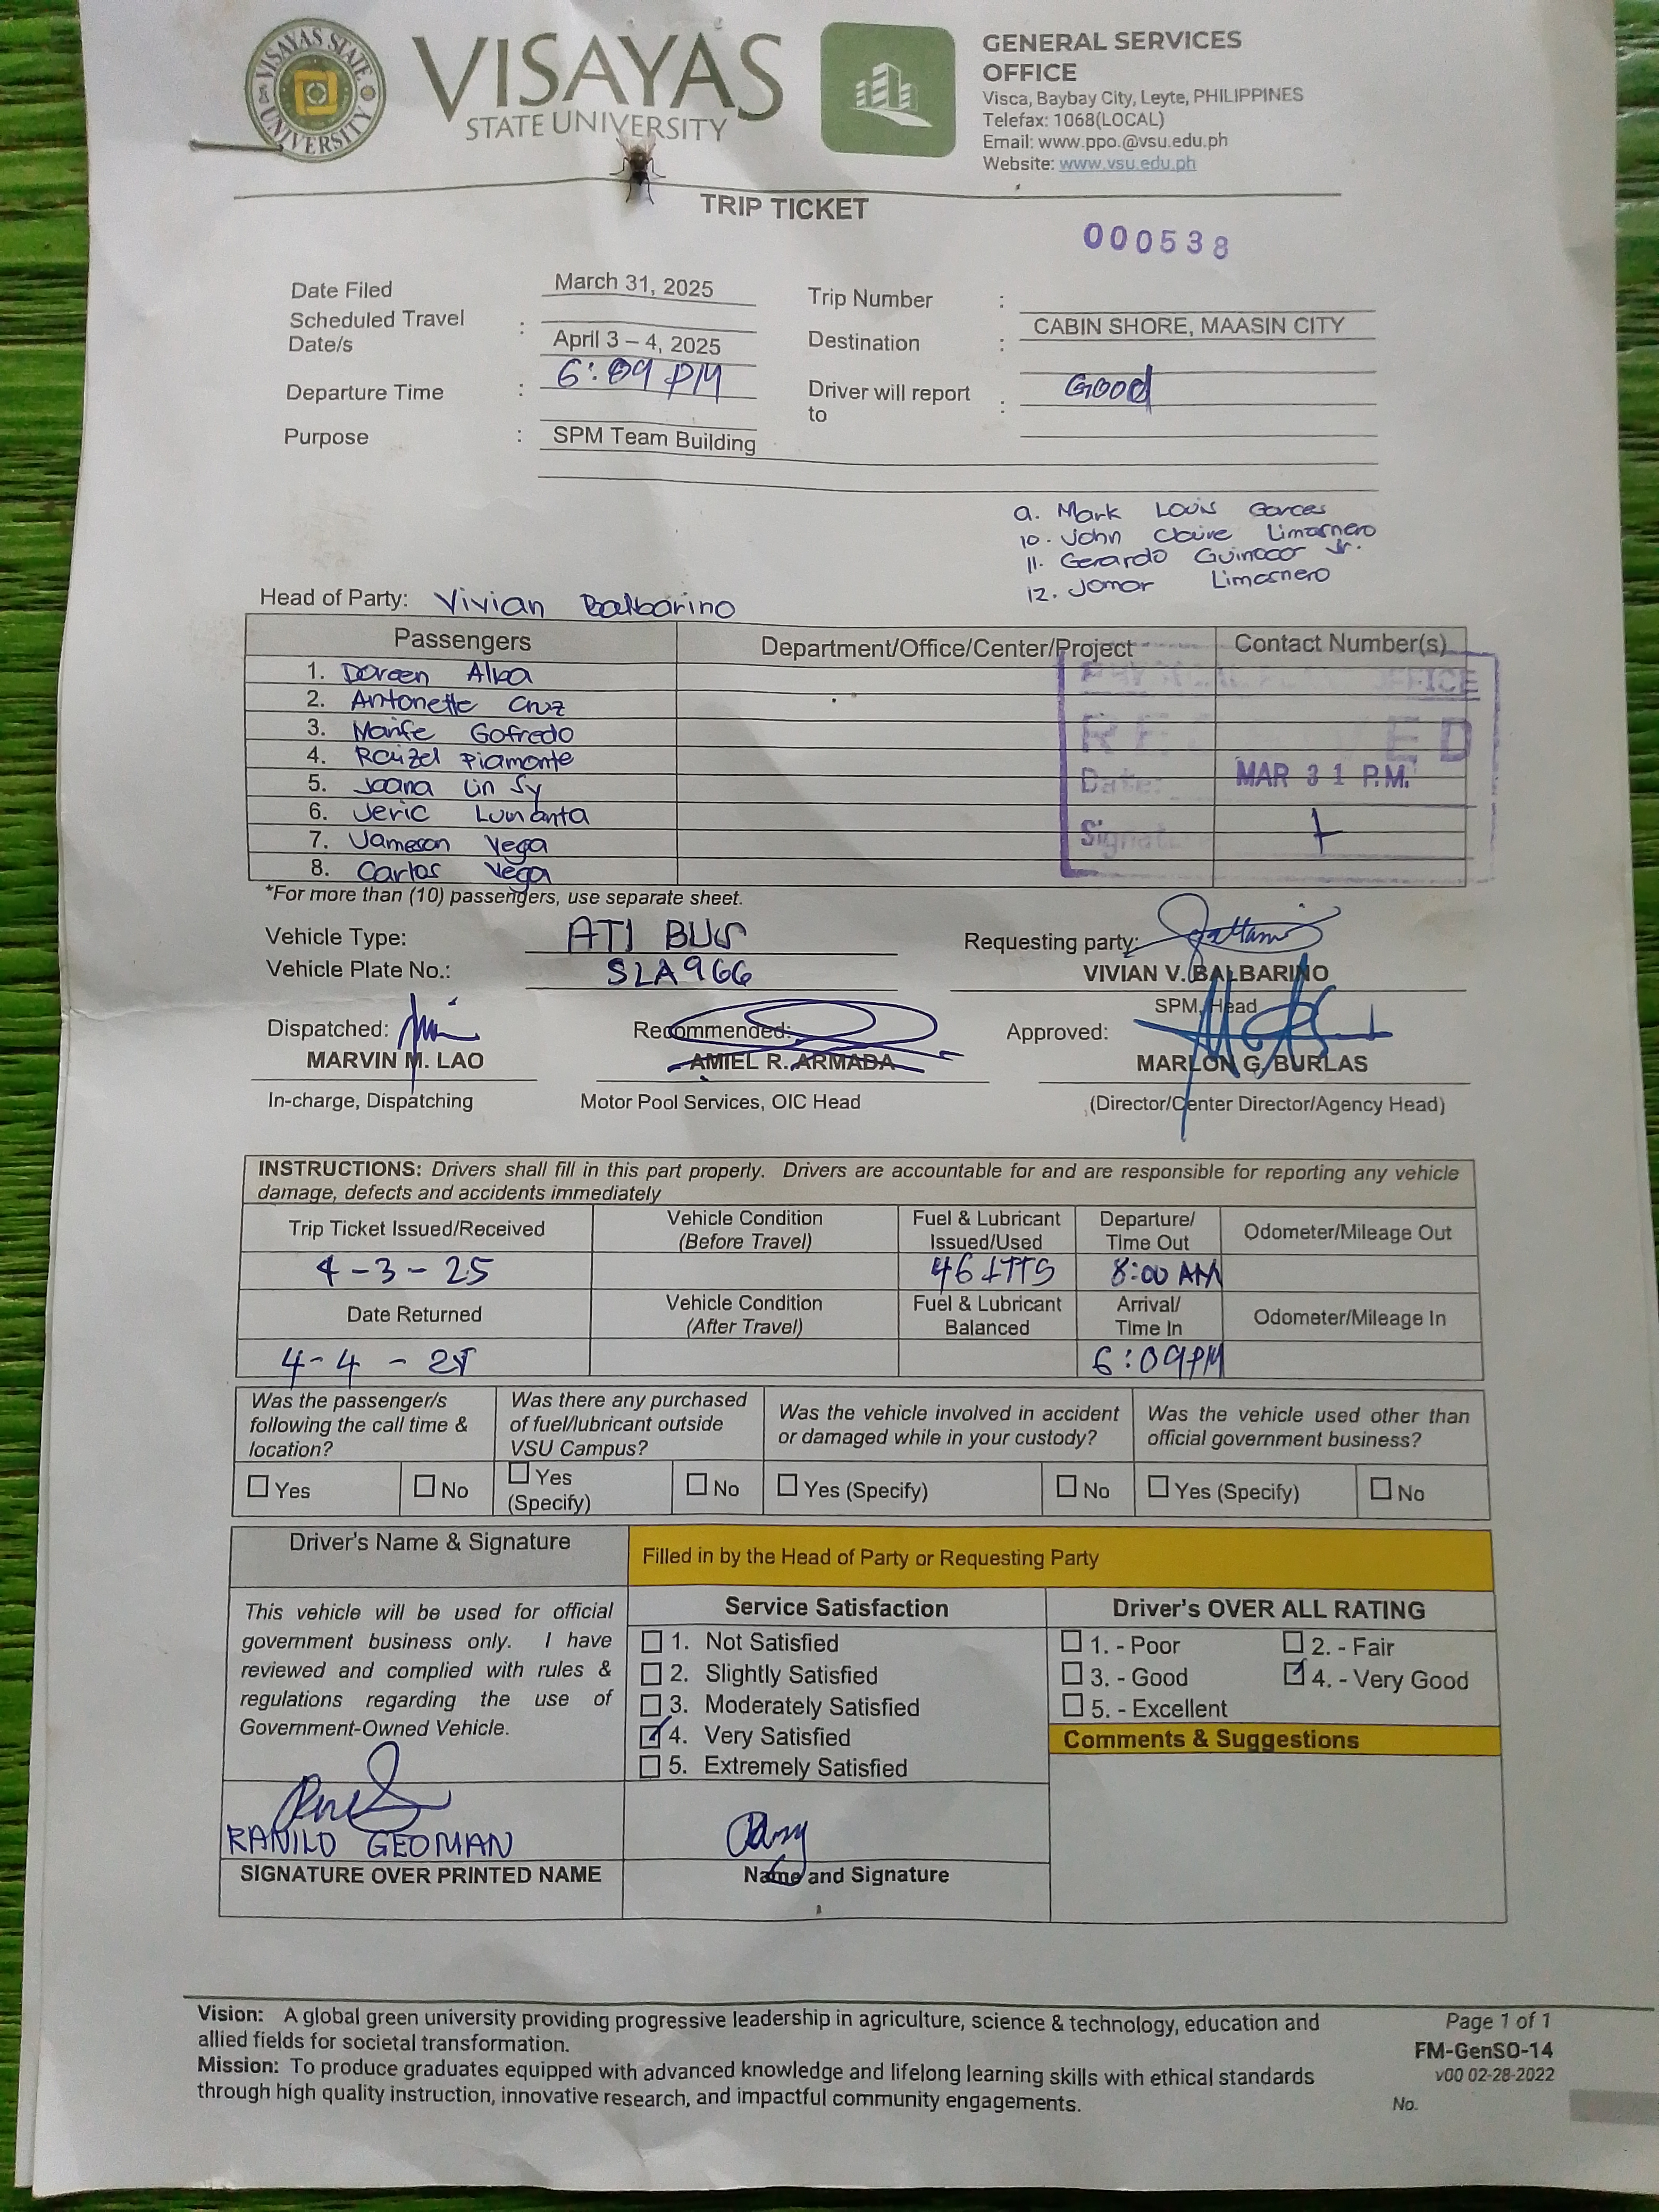 VISAYAS STATE UNIVERSITY
VISAYAS
STATE UNIVERSITY
GENERAL SERVICES
OFFICE
Visca, Baybay City, Leyte, PHILIPPINES
Telefax: 1068(LOCAL)
Email: www.ppo.@vsu.edu.ph
Website: www.vsu.edu.ph
TRIP TICKET
000538
Date Filed March 31, 2025 Trip Number :
Scheduled Travel Date/s : April 3 – 4, 2025 Destination : CABIN SHORE, MAASIN CITY
Departure Time : 6:09 PM Driver will report to : Good
Purpose : SPM Team Building
9. Mark Louis Garces
10. John Claire Limosnero
11. Gerardo Guinocor Jr.
12. Jomar Limosnero
Head of Party: Vivian Balbarino
Passengers Department/Office/Center/Project Contact Number(s)
1. Doreen Alba
2. Antonette Cruz
3. Marife Gofredo
4. Raizel Piamonte
5. Joana Lin Sy
6. Jeric Lumanta
7. Jameson Vega
8. Carlos Vega
OFFICE
RECEIVED
Date: MAR 31 P.M.
Signat
*For more than (10) passengers, use separate sheet.
Vehicle Type: ATI BUS Requesting party:
Vehicle Plate No.: SLA966 VIVIAN V. BALBARINO
SPM, Head
Dispatched: Recommended: Approved:
MARVIN M. LAO AMIEL R. ARMADA MARLON G. BURLAS
In-charge, Dispatching Motor Pool Services, OIC Head (Director/Center Director/Agency Head)
INSTRUCTIONS: Drivers shall fill in this part properly. Drivers are accountable for and are responsible for reporting any vehicle
damage, defects and accidents immediately
Trip Ticket Issued/Received Vehicle Condition (Before Travel) Fuel & Lubricant Issued/Used Departure/ Time Out Odometer/Mileage Out
4-3-25 46 LTTS 8:00 AM
Date Returned Vehicle Condition (After Travel) Fuel & Lubricant Balanced Arrival/ Time In Odometer/Mileage In
4-4-25 6:09PM
Was the passenger/s following the call time & location? Was there any purchased of fuel/lubricant outside VSU Campus? Was the vehicle involved in accident or damaged while in your custody? Was the vehicle used other than official government business?
☐ Yes ☐ No ☐ Yes (Specify) ☐ No ☐ Yes (Specify) ☐ No ☐ Yes (Specify) ☐ No
Driver's Name & Signature Filled in by the Head of Party or Requesting Party
This vehicle will be used for official
government business only. I have
reviewed and complied with rules &
regulations regarding the use of
Government-Owned Vehicle.
Service Satisfaction
☐ 1. Not Satisfied
☐ 2. Slightly Satisfied
☐ 3. Moderately Satisfied
☑ 4. Very Satisfied
☐ 5. Extremely Satisfied
Driver's OVER ALL RATING
☐ 1. - Poor ☐ 2. - Fair
☐ 3. - Good ☑ 4. - Very Good
☐ 5. - Excellent
Comments & Suggestions
RANILO GEOMAN
SIGNATURE OVER PRINTED NAME Name and Signature
Vision: A global green university providing progressive leadership in agriculture, science & technology, education and
allied fields for societal transformation.
Mission: To produce graduates equipped with advanced knowledge and lifelong learning skills with ethical standards
through high quality instruction, innovative research, and impactful community engagements.
Page 1 of 1
FM-GenSO-14
v00 02-28-2022
No.